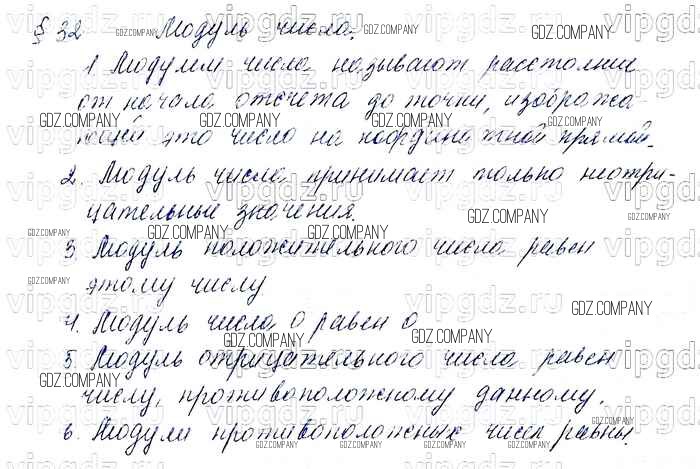 § 32 Модуль числа.
1 Модулем числа называют расстояние
от начала отсчета до точки, изобража
ющей это число на координатной прямой.
2. Модуль числа принимает только неотри-
цательные значения.
3. Модуль положительного числа равен
этому числу
4. Модуль числа 0 равен 0
5. Модуль отрицательного числа равен
числу, противоположному данному.
6. Модули противоположных чисел равны.